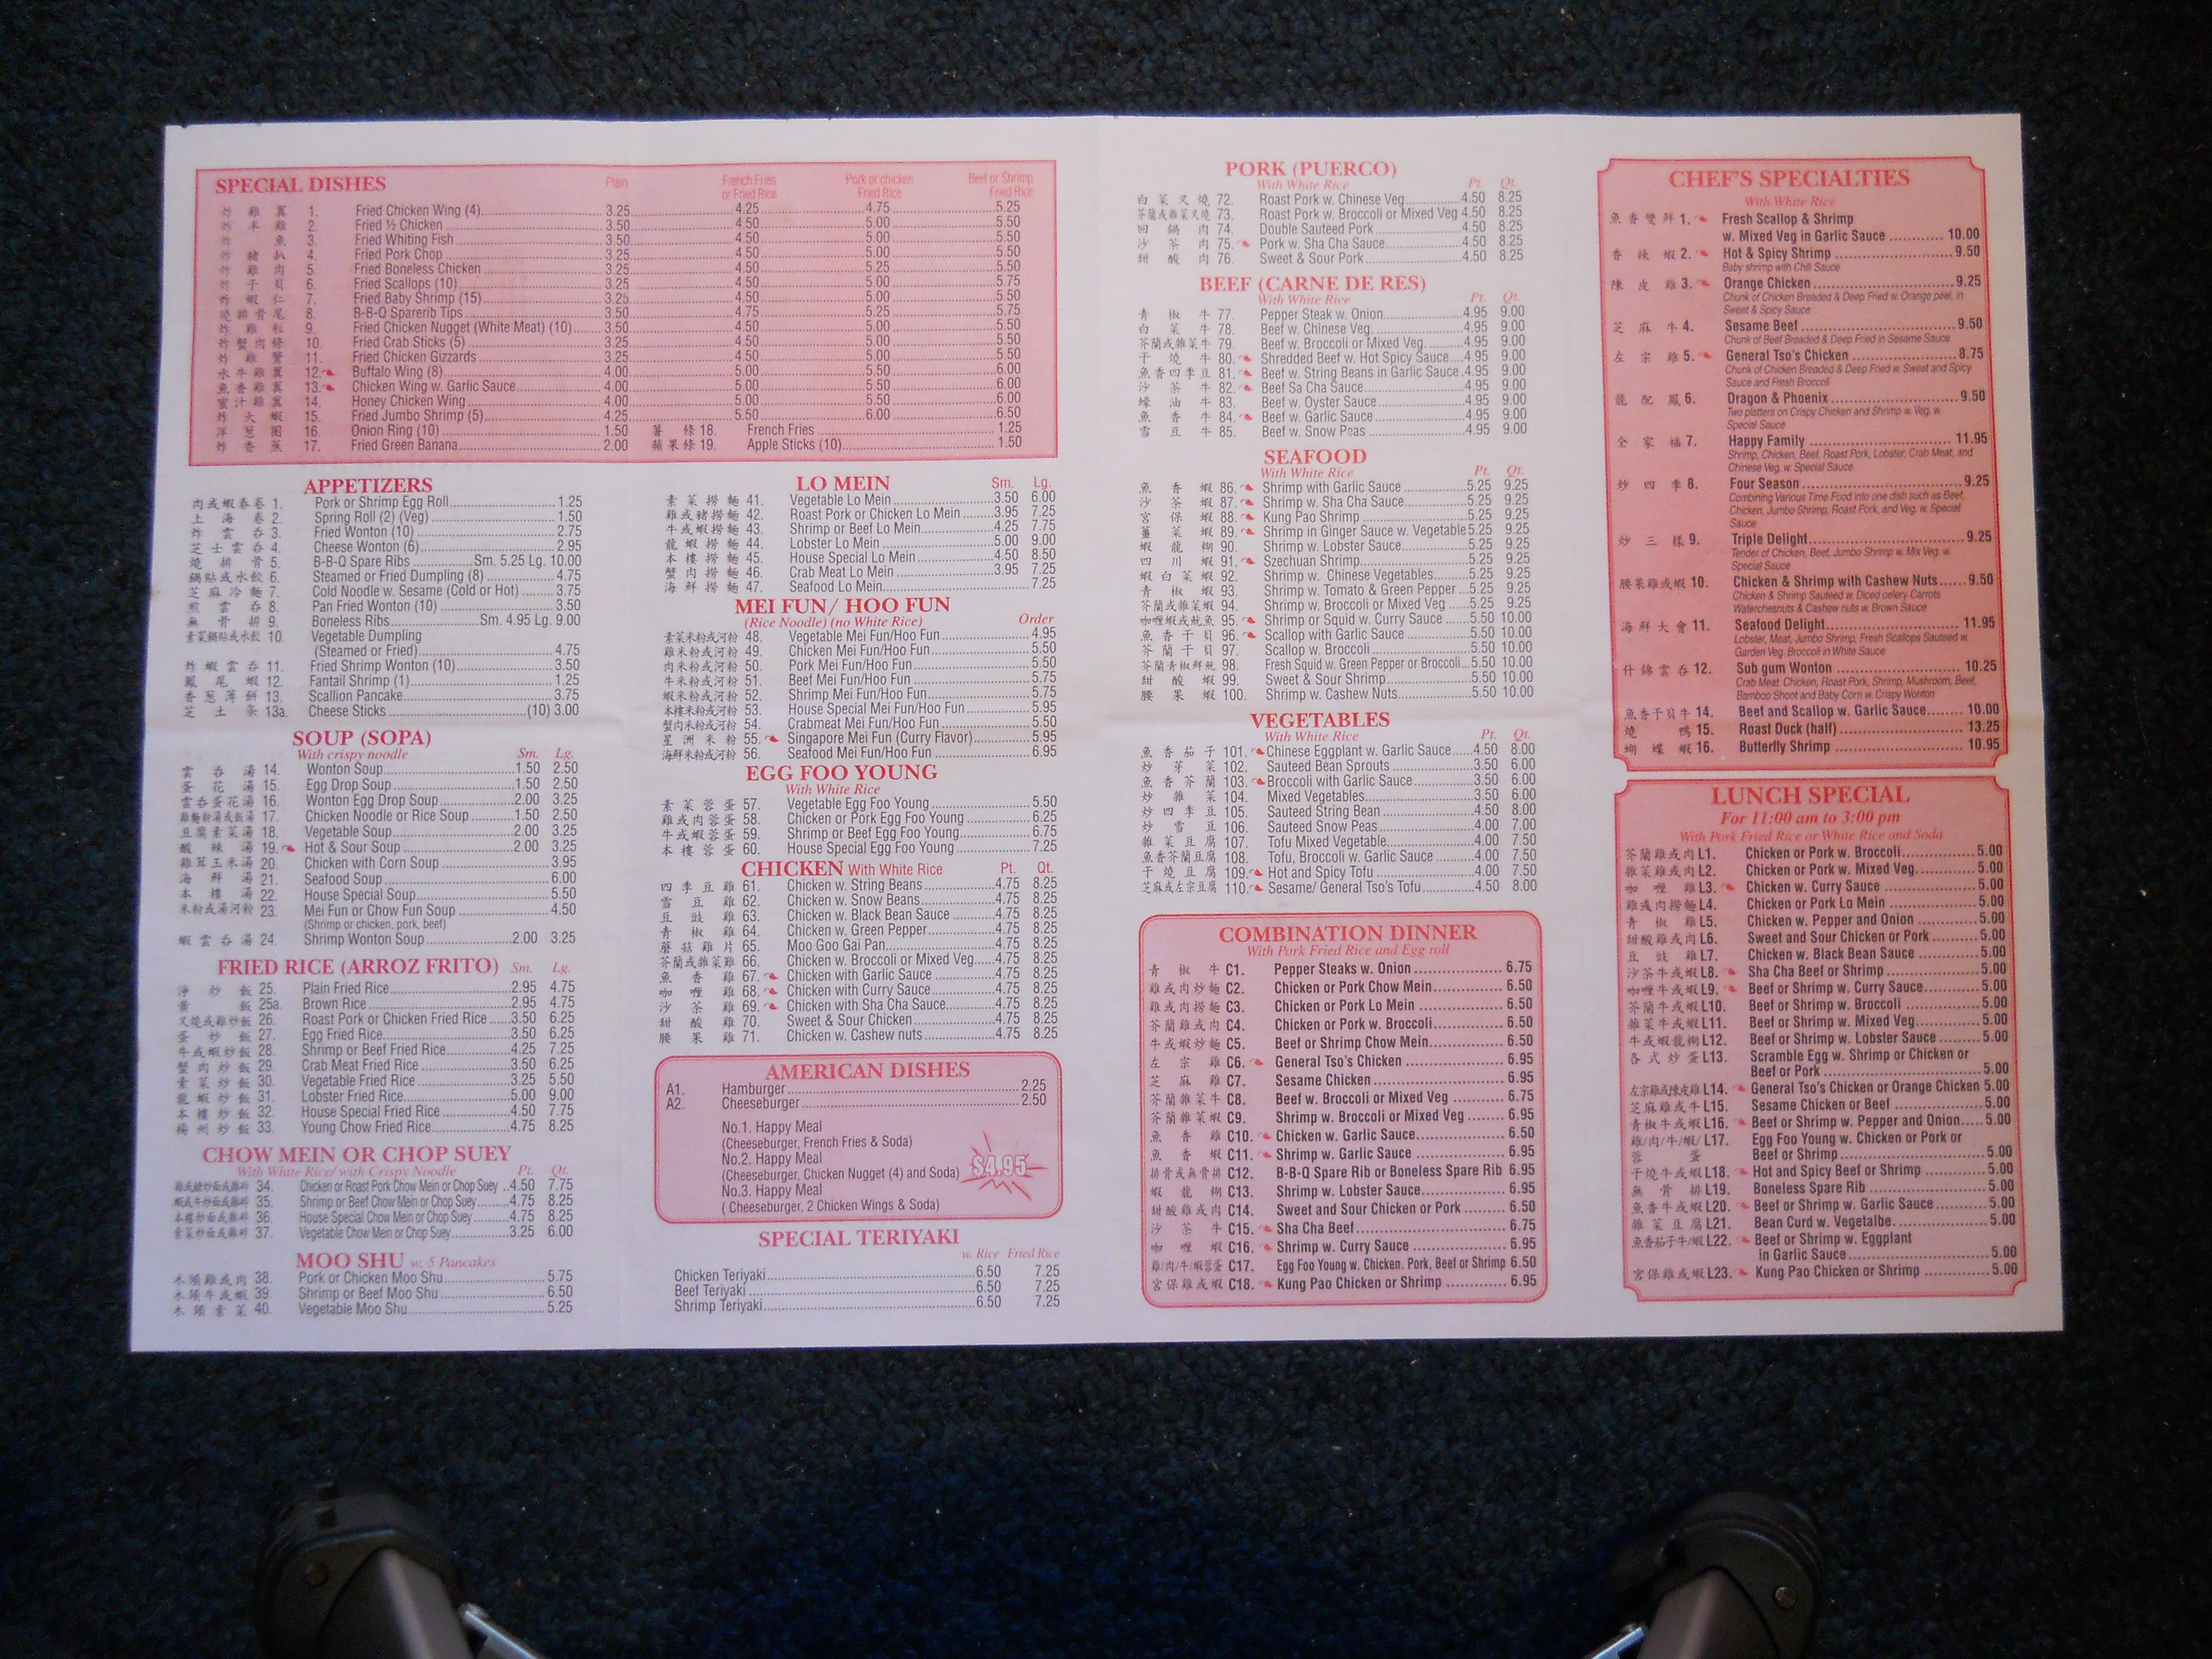 SPECIAL DISHES
Plain
French Fries or Fried Rice
Pork or chicken Fried Rice
Beef or Shrimp Fried Rice
炸雞翼 1. Fried Chicken Wing (4) 3.25 4.25 4.75 5.25
炸半雞 2. Fried ½ Chicken 3.50 4.50 5.00 5.50
炸魚 3. Fried Whiting Fish 3.50 4.50 5.00 5.50
炸豬扒 4. Fried Pork Chop 3.25 4.50 5.00 5.50
炸雞肉 5. Fried Boneless Chicken 3.25 4.50 5.25 5.50
炸干貝 6. Fried Scallops (10) 3.25 4.50 5.00 5.75
炸蝦仁 7. Fried Baby Shrimp (15) 3.25 4.50 5.00 5.50
燒排骨尾 8. B-B-Q Sparerib Tips 3.50 4.75 5.25 5.75
炸雞粒 9. Fried Chicken Nugget (White Meat) (10) 3.50 4.50 5.00 5.50
炸蟹肉條 10. Fried Crab Sticks (5) 3.25 4.50 5.00 5.50
炸雞腎 11. Fried Chicken Gizzards 3.25 4.50 5.00 5.50
水牛雞翼 12. Buffalo Wing (8) 4.00 5.00 5.50 6.00
魚香雞翼 13. Chicken Wing w. Garlic Sauce 4.00 5.00 5.50 6.00
蜜汁雞翼 14. Honey Chicken Wing 4.00 5.00 5.50 6.00
炸大蝦 15. Fried Jumbo Shrimp (5) 4.25 5.50 6.00 6.50
洋葱圈 16. Onion Ring (10) 1.50 薯條 18. French Fries 1.25
炸香蕉 17. Fried Green Banana 2.00 蘋果條 19. Apple Sticks (10) 1.50
APPETIZERS
肉或蝦春卷 1. Pork or Shrimp Egg Roll 1.25
上海卷 2. Spring Roll (2) (Veg) 1.50
炸雲吞 3. Fried Wonton (10) 2.75
芝士雲吞 4. Cheese Wonton (6) 2.95
燒排骨 5. B-B-Q Spare Ribs Sm. 5.25 Lg. 10.00
鍋貼或水餃 6. Steamed or Fried Dumpling (8) 4.75
芝麻冷麵 7. Cold Noodle w. Sesame (Cold or Hot) 3.75
煎雲吞 8. Pan Fried Wonton (10) 3.50
無骨排 9. Boneless Ribs Sm. 4.95 Lg. 9.00
素菜鍋貼或水餃 10. Vegetable Dumpling
(Steamed or Fried) 4.75
炸蝦雲吞 11. Fried Shrimp Wonton (10) 3.50
鳳尾蝦 12. Fantail Shrimp (1) 1.25
香葱薄餅 13. Scallion Pancake 3.75
芝士条 13a. Cheese Sticks (10) 3.00
SOUP (SOPA)
With crispy noodle Sm. Lg.
雲吞湯 14. Wonton Soup 1.50 2.50
蛋花湯 15. Egg Drop Soup 1.50 2.50
雲吞蛋花湯 16. Wonton Egg Drop Soup 2.00 3.25
雞麵粉湯或飯湯 17. Chicken Noodle or Rice Soup 1.50 2.50
豆腐素菜湯 18. Vegetable Soup 2.00 3.25
酸辣湯 19. Hot & Sour Soup 2.00 3.25
雞茸玉米湯 20. Chicken with Corn Soup 3.95
海鮮湯 21. Seafood Soup 6.00
本樓湯 22. House Special Soup 5.50
米粉或湯河粉 23. Mei Fun or Chow Fun Soup 4.50
(Shrimp or chicken, pork, beef)
蝦雲吞湯 24. Shrimp Wonton Soup 2.00 3.25
FRIED RICE (ARROZ FRITO) Sm. Lg.
淨炒飯 25. Plain Fried Rice 2.95 4.75
黃飯 25a. Brown Rice 2.95 4.75
叉燒或雞炒飯 26. Roast Pork or Chicken Fried Rice 3.50 6.25
蛋炒飯 27. Egg Fried Rice 3.50 6.25
牛或蝦炒飯 28. Shrimp or Beef Fried Rice 4.25 7.25
蟹肉炒飯 29. Crab Meat Fried Rice 3.50 6.25
素菜炒飯 30. Vegetable Fried Rice 3.25 5.50
龍蝦炒飯 31. Lobster Fried Rice 5.00 9.00
本樓炒飯 32. House Special Fried Rice 4.50 7.75
楊州炒飯 33. Young Chow Fried Rice 4.75 8.25
CHOW MEIN OR CHOP SUEY
With White Rice/with Crispy Noodle Pt. Qt.
34. Chicken or Roast Pork Chow Mein or Chop Suey 4.50 7.75
35. Shrimp or Beef Chow Mein or Chop Suey 4.75 8.25
36. House Special Chow Mein or Chop Suey 4.75 8.25
37. Vegetable Chow Mein or Chop Suey 3.25 6.00
MOO SHU w. 5 Pancakes
木須雞或肉 38. Pork or Chicken Moo Shu 5.75
木須牛或蝦 39. Shrimp or Beef Moo Shu 6.50
木須素菜 40. Vegetable Moo Shu 5.25
LO MEIN Sm. Lg.
素菜撈麵 41. Vegetable Lo Mein 3.50 6.00
雞或豬撈麵 42. Roast Pork or Chicken Lo Mein 3.95 7.25
牛或蝦撈麵 43. Shrimp or Beef Lo Mein 4.25 7.75
龍蝦撈麵 44. Lobster Lo Mein 5.00 9.00
本樓撈麵 45. House Special Lo Mein 4.50 8.50
蟹肉撈麵 46. Crab Meat Lo Mein 3.95 7.25
海鮮撈麵 47. Seafood Lo Mein 7.25
MEI FUN/ HOO FUN
(Rice Noodle) (no White Rice) Order
素菜米粉或河粉 48. Vegetable Mei Fun/Hoo Fun 4.95
雞米粉或河粉 49. Chicken Mei Fun/Hoo Fun 5.50
肉米粉或河粉 50. Pork Mei Fun/Hoo Fun 5.50
牛米粉或河粉 51. Beef Mei Fun/Hoo Fun 5.75
蝦米粉或河粉 52. Shrimp Mei Fun/Hoo Fun 5.75
本樓米粉或河粉 53. House Special Mei Fun/Hoo Fun 5.95
蟹肉米粉或河粉 54. Crabmeat Mei Fun/Hoo Fun 5.50
星洲米粉 55. Singapore Mei Fun (Curry Flavor) 5.95
海鮮米粉或河粉 56. Seafood Mei Fun/Hoo Fun 6.95
EGG FOO YOUNG
With White Rice
素菜蓉蛋 57. Vegetable Egg Foo Young 5.50
雞或肉蓉蛋 58. Chicken or Pork Egg Foo Young 6.25
牛或蝦蓉蛋 59. Shrimp or Beef Egg Foo Young 6.75
本樓蓉蛋 60. House Special Egg Foo Young 7.25
CHICKEN With White Rice Pt. Qt.
四季豆雞 61. Chicken w. String Beans 4.75 8.25
雪豆雞 62. Chicken w. Snow Beans 4.75 8.25
豆豉雞 63. Chicken w. Black Bean Sauce 4.75 8.25
青椒雞 64. Chicken w. Green Pepper 4.75 8.25
蘑菇雞片 65. Moo Goo Gai Pan 4.75 8.25
芥蘭或雜菜雞 66. Chicken w. Broccoli or Mixed Veg 4.75 8.25
魚香雞 67. Chicken with Garlic Sauce 4.75 8.25
咖喱雞 68. Chicken with Curry Sauce 4.75 8.25
沙茶雞 69. Chicken with Sha Cha Sauce 4.75 8.25
甜酸雞 70. Sweet & Sour Chicken 4.75 8.25
腰果雞 71. Chicken w. Cashew nuts 4.75 8.25
AMERICAN DISHES
A1. Hamburger 2.25
A2. Cheeseburger 2.50
No.1. Happy Meal
(Cheeseburger, French Fries & Soda)
No.2. Happy Meal
(Cheeseburger, Chicken Nugget (4) and Soda) $4.95
No.3. Happy Meal
( Cheeseburger, 2 Chicken Wings & Soda)
SPECIAL TERIYAKI
w. Rice Fried Rice
Chicken Teriyaki 6.50 7.25
Beef Teriyaki 6.50 7.25
Shrimp Teriyaki 6.50 7.25
PORK (PUERCO)
With White Rice Pt. Qt.
白菜叉燒 72. Roast Pork w. Chinese Veg 4.50 8.25
芥蘭或雜菜叉燒 73. Roast Pork w. Broccoli or Mixed Veg 4.50 8.25
回鍋肉 74. Double Sauteed Pork 4.50 8.25
沙茶肉 75. Pork w. Sha Cha Sauce 4.50 8.25
甜酸肉 76. Sweet & Sour Pork 4.50 8.25
BEEF (CARNE DE RES)
With White Rice Pt. Qt.
青椒牛 77. Pepper Steak w. Onion 4.95 9.00
白菜牛 78. Beef w. Chinese Veg. 4.95 9.00
芥蘭或雜菜牛 79. Beef w. Broccoli or Mixed Veg. 4.95 9.00
干燒牛 80. Shredded Beef w. Hot Spicy Sauce 4.95 9.00
魚香四季豆 81. Beef w. String Beans in Garlic Sauce 4.95 9.00
沙茶牛 82. Beef Sa Cha Sauce 4.95 9.00
蠔油牛 83. Beef w. Oyster Sauce 4.95 9.00
魚香牛 84. Beef w. Garlic Sauce 4.95 9.00
雪豆牛 85. Beef w. Snow Peas 4.95 9.00
SEAFOOD
With White Rice Pt. Qt.
魚香蝦 86. Shrimp with Garlic Sauce 5.25 9.25
沙茶蝦 87. Shrimp w. Sha Cha Sauce 5.25 9.25
宮保蝦 88. Kung Pao Shrimp 5.25 9.25
薑菜蝦 89. Shrimp in Ginger Sauce w. Vegetable 5.25 9.25
蝦龍糊 90. Shrimp w. Lobster Sauce 5.25 9.25
四川蝦 91. Szechuan Shrimp 5.25 9.25
蝦白菜蝦 92. Shrimp w. Chinese Vegetables 5.25 9.25
青椒蝦 93. Shrimp w. Tomato & Green Pepper 5.25 9.25
芥蘭或雜菜蝦 94. Shrimp w. Broccoli or Mixed Veg 5.25 9.25
咖喱蝦或魷魚 95. Shrimp or Squid w. Curry Sauce 5.50 10.00
魚香干貝 96. Scallop with Garlic Sauce 5.50 10.00
芥蘭干貝 97. Scallop w. Broccoli 5.50 10.00
芥蘭青椒鮮魷 98. Fresh Squid w. Green Pepper or Broccoli 5.50 10.00
甜酸蝦 99. Sweet & Sour Shrimp 5.50 10.00
腰果蝦 100. Shrimp w. Cashew Nuts 5.50 10.00
VEGETABLES
With White Rice Pt. Qt.
魚香茄子 101. Chinese Eggplant w. Garlic Sauce 4.50 8.00
炒芽菜 102. Sauteed Bean Sprouts 3.50 6.00
魚香芥蘭 103. Broccoli with Garlic Sauce 3.50 6.00
炒雜菜 104. Mixed Vegetables 3.50 6.00
炒四季豆 105. Sauteed String Bean 4.50 8.00
炒雪豆 106. Sauteed Snow Peas 4.00 7.00
雜菜豆腐 107. Tofu Mixed Vegetable 4.00 7.50
魚香芥蘭豆腐 108. Tofu, Broccoli w. Garlic Sauce 4.00 7.50
干燒豆腐 109. Hot and Spicy Tofu 4.00 7.50
芝麻或左宗豆腐 110. Sesame/ General Tso's Tofu 4.50 8.00
COMBINATION DINNER
With Pork Fried Rice and Egg roll
青椒牛 C1. Pepper Steaks w. Onion 6.75
雞或肉炒麵 C2. Chicken or Pork Chow Mein 6.50
雞或肉撈麵 C3. Chicken or Pork Lo Mein 6.50
芥蘭雞或肉 C4. Chicken or Pork w. Broccoli 6.50
牛或蝦炒麵 C5. Beef or Shrimp Chow Mein 6.50
左宗雞 C6. General Tso's Chicken 6.95
芝麻雞 C7. Sesame Chicken 6.95
芥蘭雜菜牛 C8. Beef w. Broccoli or Mixed Veg 6.75
芥蘭雜菜蝦 C9. Shrimp w. Broccoli or Mixed Veg 6.95
魚香雞 C10. Chicken w. Garlic Sauce 6.50
魚香蝦 C11. Shrimp w. Garlic Sauce 6.95
排骨或無骨排 C12. B-B-Q Spare Rib or Boneless Spare Rib 6.95
蝦龍糊 C13. Shrimp w. Lobster Sauce 6.95
甜酸雞或肉 C14. Sweet and Sour Chicken or Pork 6.50
沙茶牛 C15. Sha Cha Beef 6.75
咖喱蝦 C16. Shrimp w. Curry Sauce 6.95
雞/肉/牛/蝦蓉蛋 C17. Egg Foo Young w. Chicken. Pork, Beef or Shrimp 6.50
宮保雞或蝦 C18. Kung Pao Chicken or Shrimp 6.95
CHEF'S SPECIALTIES
With White Rice
魚香雙鮮 1. Fresh Scallop & Shrimp
w. Mixed Veg in Garlic Sauce 10.00
香辣蝦 2. Hot & Spicy Shrimp 9.50
Baby shrimp with Chili Sauce
陳皮雞 3. Orange Chicken 9.25
Chunk of Chicken Breaded & Deep Fried w. Orange peel, in
Sweet & Spicy Sauce
芝麻牛 4. Sesame Beef 9.50
Chunk of Beef Breaded & Deep Fried in Sesame Sauce
左宗雞 5. General Tso's Chicken 8.75
Chunk of Chicken Breaded & Deep Fried w. Sweet and Spicy
Sauce and Fresh Broccoli
龍配鳳 6. Dragon & Phoenix 9.50
Two platters on Crispy Chicken and Shrimp w. Veg. w.
Special Sauce
全家福 7. Happy Family 11.95
Shrimp, Chicken, Beef, Roast Pork, Lobster, Crab Meat, and
Chinese Veg. w. Special Sauce
炒四季 8. Four Season 9.25
Combining Various Time Food into one dish such as Beef,
Chicken, Jumbo Shrimp, Roast Pork, and Veg. w. Special
Sauce
炒三樣 9. Triple Delight 9.25
Tender of Chicken, Beef, Jumbo Shrimp w. Mix Veg. w.
Special Sauce
腰果雞或蝦 10. Chicken & Shrimp with Cashew Nuts 9.50
Chicken & Shrimp Sauteed w. Diced celery Carrots
Waterchesnuts & Cashew nuts w. Brown Sauce
海鮮大會 11. Seafood Delight 11.95
Lobster, Meat, Jumbo Shrimp, Fresh Scallops Sauteed w.
Garden Veg. Broccoli in White Sauce
什錦雲吞 12. Sub gum Wonton 10.25
Crab Meat, Chicken, Roast Pork, Shrimp, Mushroom, Beef,
Bamboo Shoot and Baby Corn w. Crispy Wonton
魚香干貝牛 14. Beef and Scallop w. Garlic Sauce 10.00
燒鴨 15. Roast Duck (half) 13.25
蝴蝶蝦 16. Butterfly Shrimp 10.95
LUNCH SPECIAL
For 11:00 am to 3:00 pm
With Pork Fried Rice or White Rice and Soda
芥蘭雞或肉 L1. Chicken or Pork w. Broccoli 5.00
雜菜雞或肉 L2. Chicken or Pork w. Mixed Veg 5.00
咖喱雞 L3. Chicken w. Curry Sauce 5.00
雞或肉撈麵 L4. Chicken or Pork Lo Mein 5.00
青椒雞 L5. Chicken w. Pepper and Onion 5.00
甜酸雞或肉 L6. Sweet and Sour Chicken or Pork 5.00
豆豉雞 L7. Chicken w. Black Bean Sauce 5.00
沙茶牛或蝦 L8. Sha Cha Beef or Shrimp 5.00
咖喱牛或蝦 L9. Beef or Shrimp w. Curry Sauce 5.00
芥蘭牛或蝦 L10. Beef or Shrimp w. Broccoli 5.00
雜菜牛或蝦 L11. Beef or Shrimp w. Mixed Veg 5.00
牛或蝦龍糊 L12. Beef or Shrimp w. Lobster Sauce 5.00
各式炒蛋 L13. Scramble Egg w. Shrimp or Chicken or
Beef or Pork 5.00
左宗雞或陳皮雞 L14. General Tso's Chicken or Orange Chicken 5.00
芝麻雞或牛 L15. Sesame Chicken or Beef 5.00
青椒牛或蝦 L16. Beef or Shrimp w. Pepper and Onion 5.00
雞/肉/牛/蝦/ L17. Egg Foo Young w. Chicken or Pork or
蓉蛋 Beef or Shrimp 5.00
干燒牛或蝦 L18. Hot and Spicy Beef or Shrimp 5.00
無骨排 L19. Boneless Spare Rib 5.00
魚香牛或蝦 L20. Beef or Shrimp w. Garlic Sauce 5.00
雜菜豆腐 L21. Bean Curd w. Vegetalbe 5.00
魚香茄子牛/蝦 L22. Beef or Shrimp w. Eggplant
in Garlic Sauce 5.00
宮保雞或蝦 L23. Kung Pao Chicken or Shrimp 5.00